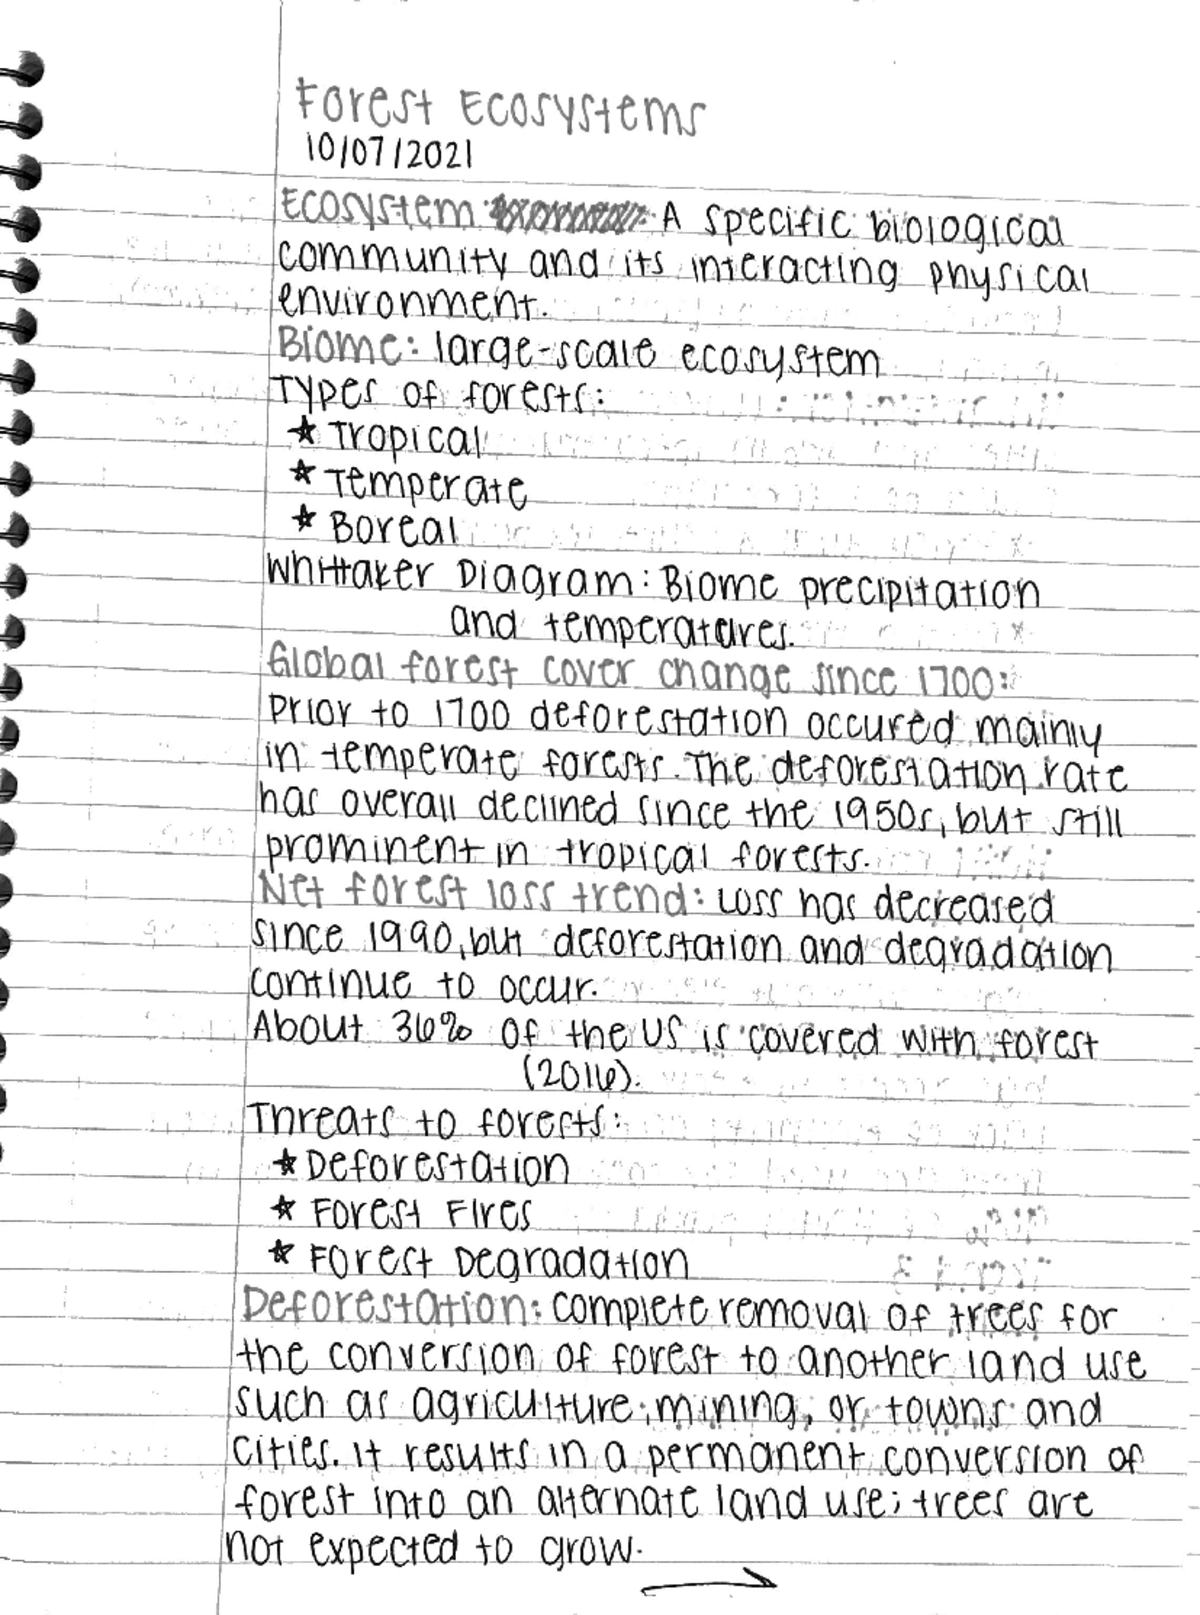 Forest Ecosystems
10/07/2021
Ecosystem: A specific biological
community and its interacting physical
environment.
Biome: large-scale ecosystem
Types of forests:
★ Tropical
★ Temperate
★ Boreal
Whittaker Diagram: Biome precipitation
and temperatures.
Global forest cover change since 1700:
Prior to 1700 deforestation occured mainly
in temperate forests. The deforestation rate
has overall declined since the 1950s, but still
prominent in tropical forests.
Net forest loss trend: Loss has decreased
since 1990, but deforestation and degradation
continue to occur.
About 36% of the US is covered with forest
(2016).
Threats to forests:
★ Deforestation
★ Forest Fires
★ Forest Degradation
Deforestation: complete removal of trees for
the conversion of forest to another land use
such as agriculture, mining, or towns and
cities. It results in a permanent conversion of
forest into an alternate land use; trees are
not expected to grow.